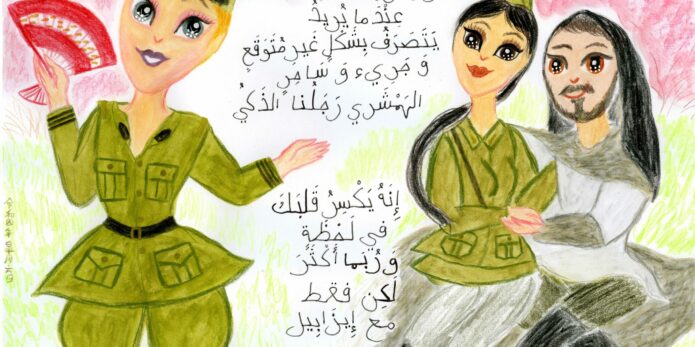 عِنْدَما يُرِيدُ
يَتَصَرَفُ بِشَكْلٍ غَيرِ مُتَوَقَعٍ
وَ جَرِيء وَ سَاحِرٍ
الهَمْشَرِي رَجُلُنا الذَكيُ
إِنَهُ يَكْسِرُ قَلبَكَ
في لَحْظَة
وَرُبَما أَكْثَرَ
لَكِن فَقَط
مع إِيزَابِيل